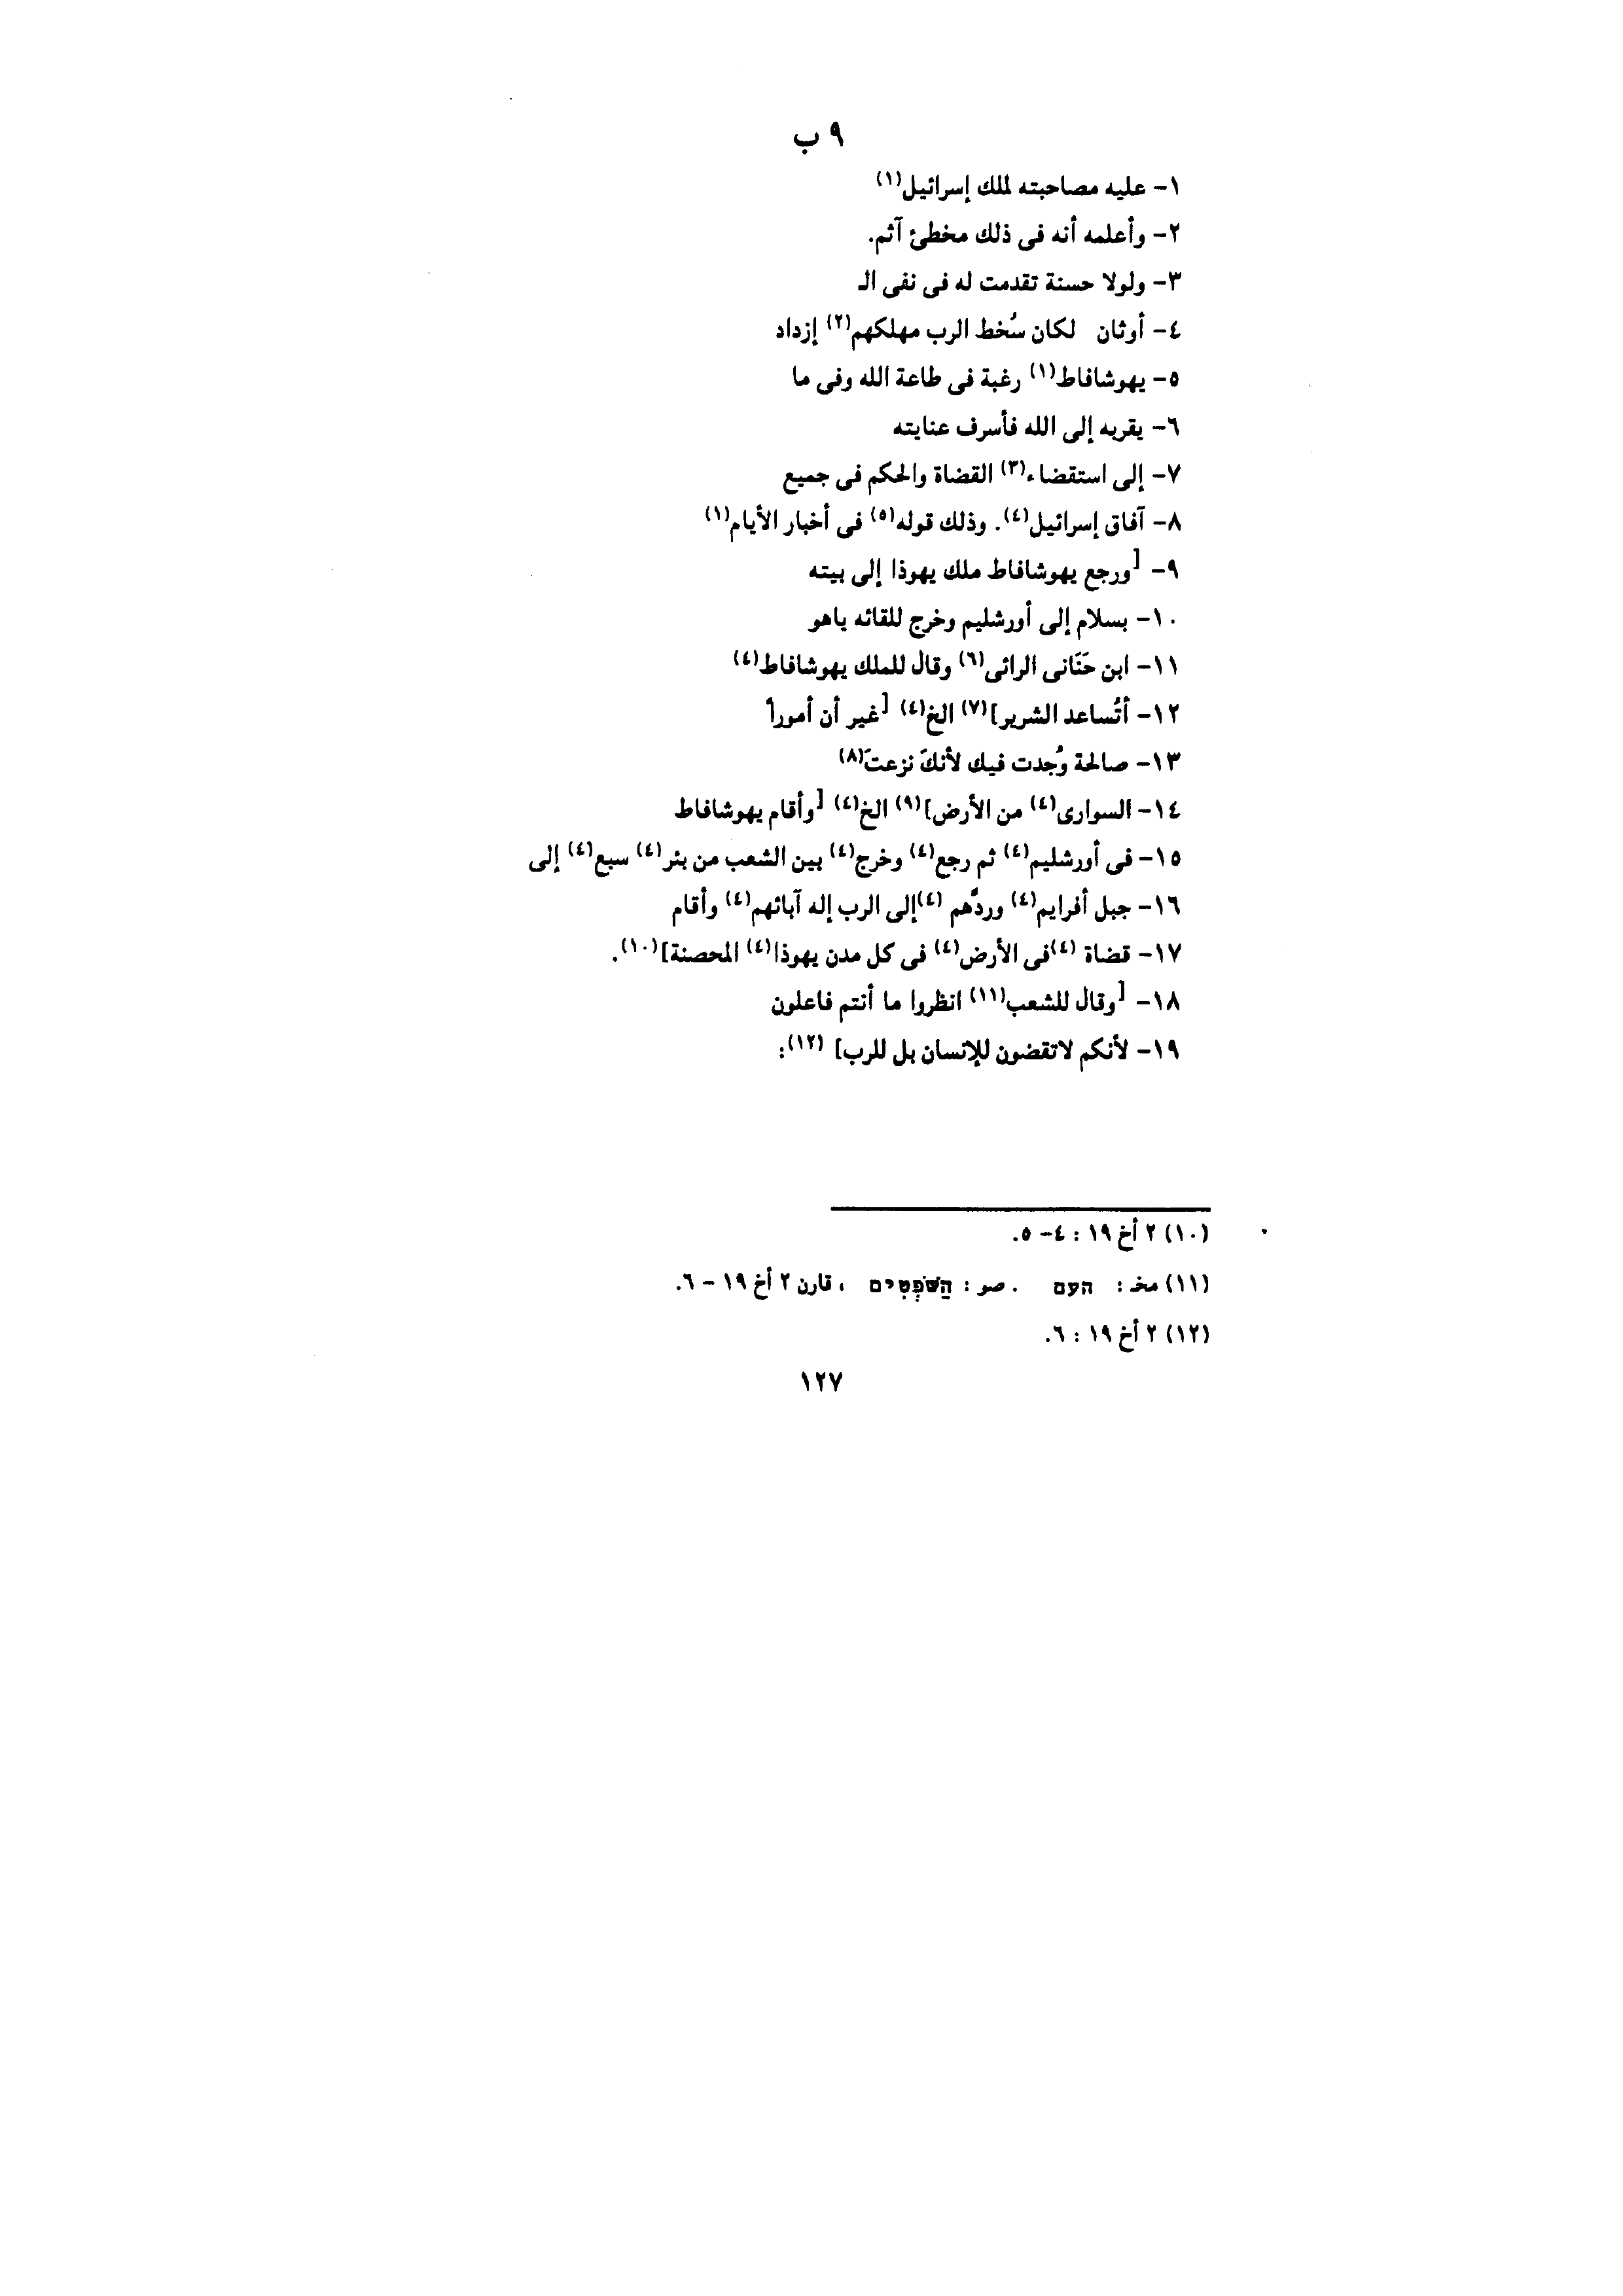 ٩ ب
١- عليه مصاحبته لملك إسرائيل(١)
٢- وأعلمه أنه فى ذلك مخطئ آثم.
٣- ولولا حسنة تقدمت له فى نفى الـ
٤- أوثان لكان سُخط الرب مهلكهم(٢) إزداد
٥- يهوشافاط(١) رغبة فى طاعة الله وفى ما
٦- يقربه إلى الله فأسرف عنايته
٧- إلى استقضاء(٣) القضاة والحكم فى جميع
٨- آفاق إسرائيل(٤). وذلك قوله(٥) فى أخبار الأيام(١)
٩- [ورجع يهوشافاط ملك يهوذا إلى بيته
١٠- بسلام إلى أورشليم وخرج للقائه ياهو
١١- ابن حَنَانى الرائى(٦) وقال للملك يهوشافاط(٤)
١٢- أتُساعد الشرير](٧) الخ(٤) [غير أن أموراً
١٣- صالحة وُجدت فيك لأنكَ نزعتَ(٨)
١٤- السوارى(٤) من الأرض](٩) الخ(٤) [وأقام يهوشافاط
١٥- فى أورشليم(٤) ثم رجع(٤) وخرج(٤) بين الشعب من بئر(٤) سبع(٤) إلى
١٦- جبل أفرايم(٤) وردَّهم (٤)إلى الرب إله آبائهم(٤) وأقام
١٧- قضاة (٤)فى الأرض(٤) فى كل مدن يهوذا(٤) المحصنة](١٠).
١٨- [وقال للشعب(١١) انظروا ما أنتم فاعلون
١٩- لأنكم لاتقضون للإنسان بل للرب] (١٢):
(١٠) ٢ أخ ١٩ : ٤- ٥.
(١١) مخـ : העם . صو : הַשֹּׁפְטִים ، قارن ٢ أخ ١٩ - ٦.
(١٢) ٢ أخ ١٩ : ٦.
١٢٧